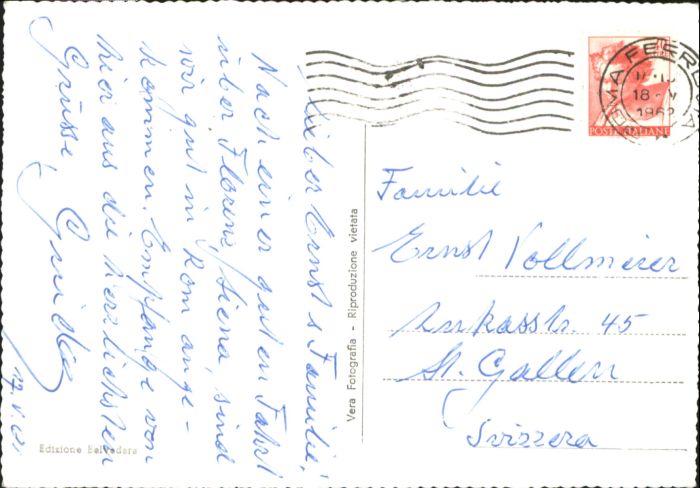 Lieber Ernst & Familie,
Nach einer guten Fahrt
über Florenz, Siena, sind
wir gut in Rom ange-
kommen. Empfange von
hier aus die herzlichsten
Grüsse, Guido
17. V. 62
Edizione Belvedere
Vera Fotografia - Riproduzione vietata
ROMA FERROVIA
18 - V
1962
POSTE ITALIANE
Familie
Ernst Vollmeier
45
St. Gallen
Svizzera